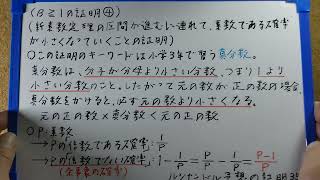 (B≧1の証明④)
(新素数定理の区間が進むに連れて、素数である確率
が小さくなっていくことの証明)
○この証明のキーワードは小学3年で習う真分数。
真分数は、分子が分母より小さい分数、つまり1より
小さい分数のこと。したがって元の数が正の数の場合、
真分数をかけると、必ず元の数より小さくなる。
元の正の数×真分数<元の正の数
○P:素数
→Pの倍数である確率:1/P
→Pの倍数でない確率:1-1/P=P/P-1/P=P-1/P
(余事象の確率)